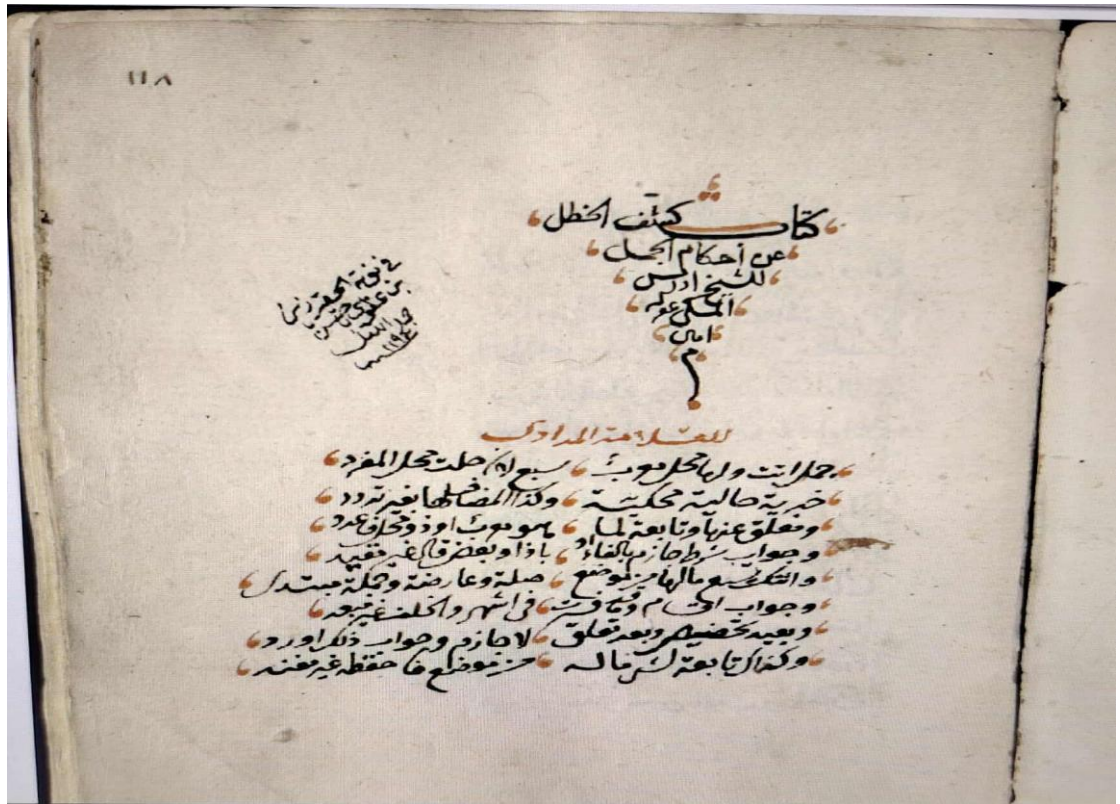 ١١٨
كتاب كشف الخطل
عن احكام الجمل
للشيخ ادريس
المكي عفى
امين
م
في نوبة الحقير
بن علوي
سنة ١١٩٤
للعلامة المرادي
جمل اتت ولها محل معرب سبع لان حلت محل المفرد
خبرية حالية محكية وكذا المضاف لها بغير تردد
ومعلق عنها وتابعة لما هو معرب او ذو محل فاعدد
وجواب شرط جازم بالفاء او باذا وبعض قال غير مقيد
واتتك سبع ما لها من موضع صلة وعارضة وجملة مبتدى
وجواب اقسام وما قد فسرت في اشهر والخلف غير مبعد
وبعيد تحضيض وبعد تعلق لا جازم وجواب ذلك اورد
وكذاك تابعة لشيء ما له من موضع فاحفظه غير مفند